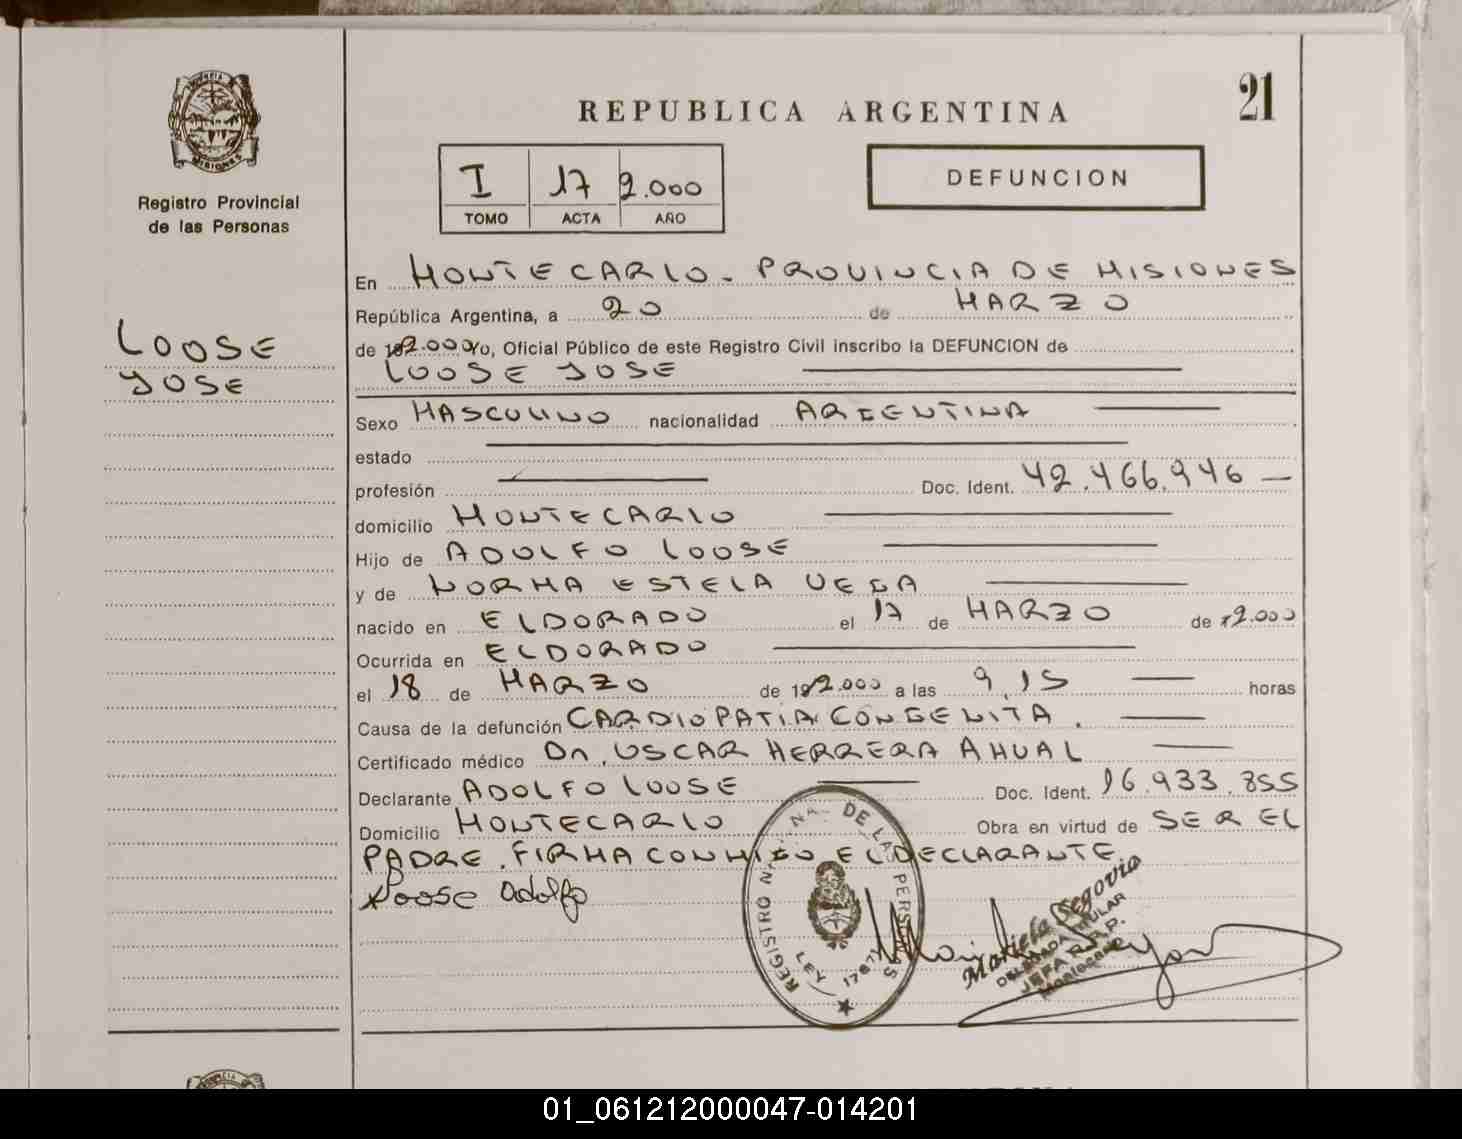 PROVINCIA DE
MISIONES
Registro Provincial
de las Personas
LOOSE
JOSE
21
REPUBLICA ARGENTINA
I 17 2.000
TOMO ACTA AÑO
DEFUNCION
En MONTECARLO - PROVINCIA DE MISIONES
República Argentina, a 20 de MARZO
de 2.000 Yo, Oficial Público de este Registro Civil inscribo la DEFUNCION de
LOOSE JOSE
Sexo MASCULINO nacionalidad ARGENTINA
estado
profesión Doc. Ident. 42.466.946 —
domicilio MONTECARLO
Hijo de ADOLFO LOOSE
y de NORMA ESTELA VEGA
nacido en ELDORADO el 17 de MARZO de 2.000
Ocurrida en ELDORADO
el 18 de MARZO de 2.000 a las 9,15 horas
Causa de la defunción CARDIOPATIA CONGENITA.
Certificado médico Dr. OSCAR HERRERA AHUAL
Declarante ADOLFO LOOSE Doc. Ident. 16.933.855
Domicilio MONTECARLO Obra en virtud de SER EL
PADRE. FIRMA CONMIGO EL DECLARANTE
Loose Adolfo
REGISTRO NACIONAL DE LAS PERSONAS
LEY 17671
Mariela Segovia
DELEGADA TITULAR
JEFA R.P.P.
Montecarlo
01_061212000047-014201